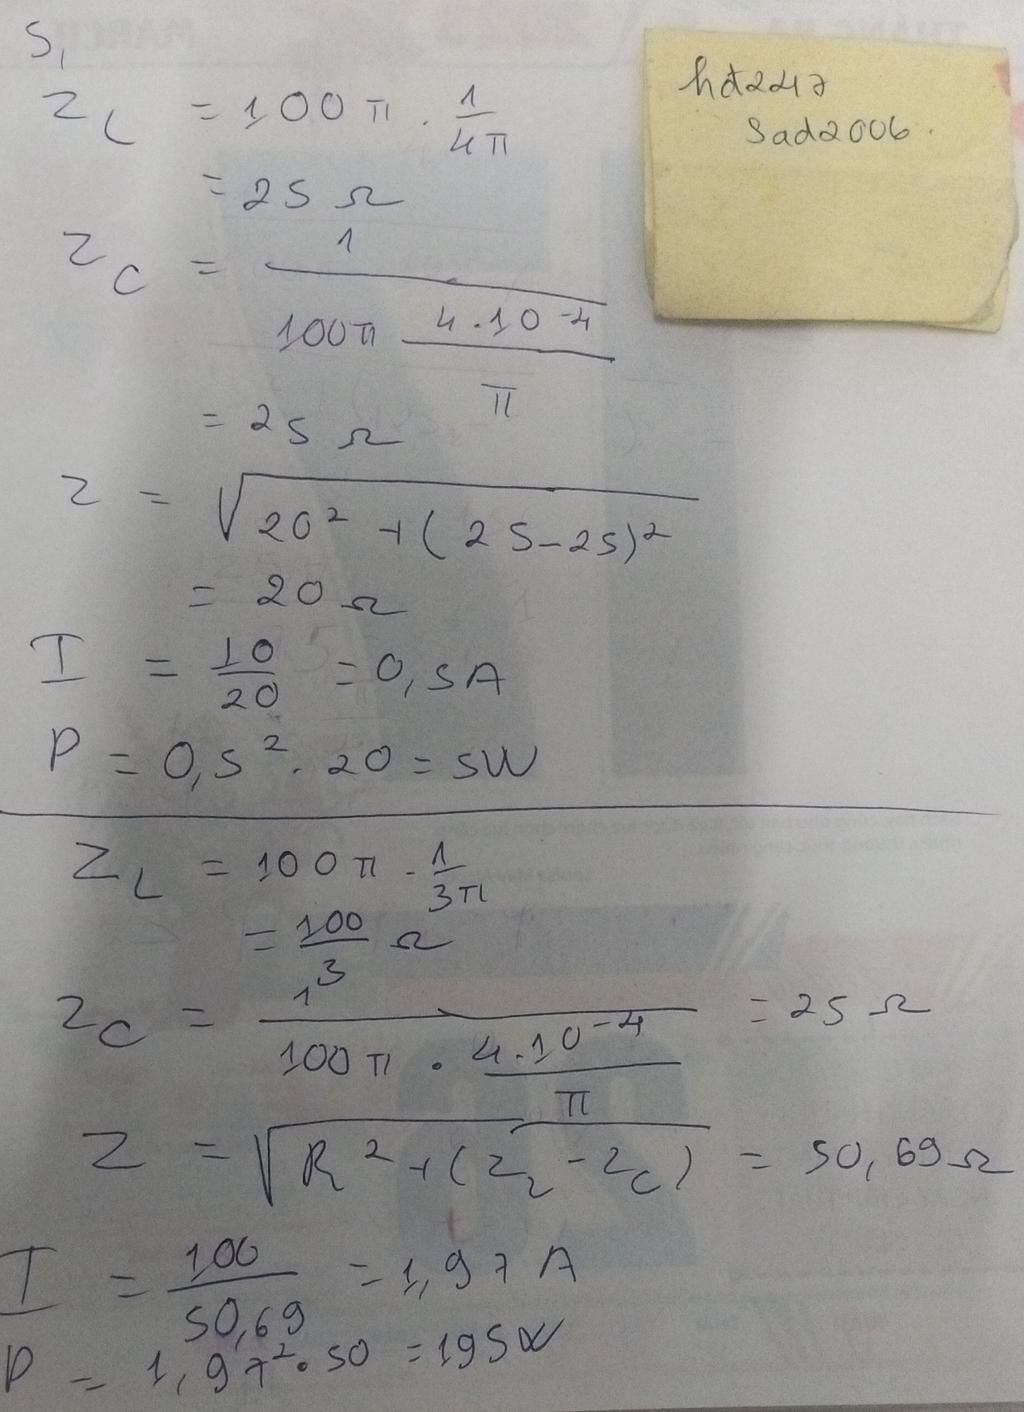 S,
Z_L = 100π . 1/4π
= 25 Ω
Z_C = 1/(100π 4.10^-4/π)
= 25 Ω
Z = √(20² + (25-25)²)
= 20 Ω
I = 10/20 = 0,5A
P = 0,5². 20 = 5W
Z_L = 100π . 1/3π
= 100/3 Ω
Z_C = 1/(100π . 4.10^-4/π) = 25 Ω
Z = √(R² + (Z_L - Z_C) = 50,69Ω
I = 100/50,69 = 1,97 A
P = 1,97².50 = 195W
hđ247
sad2006.